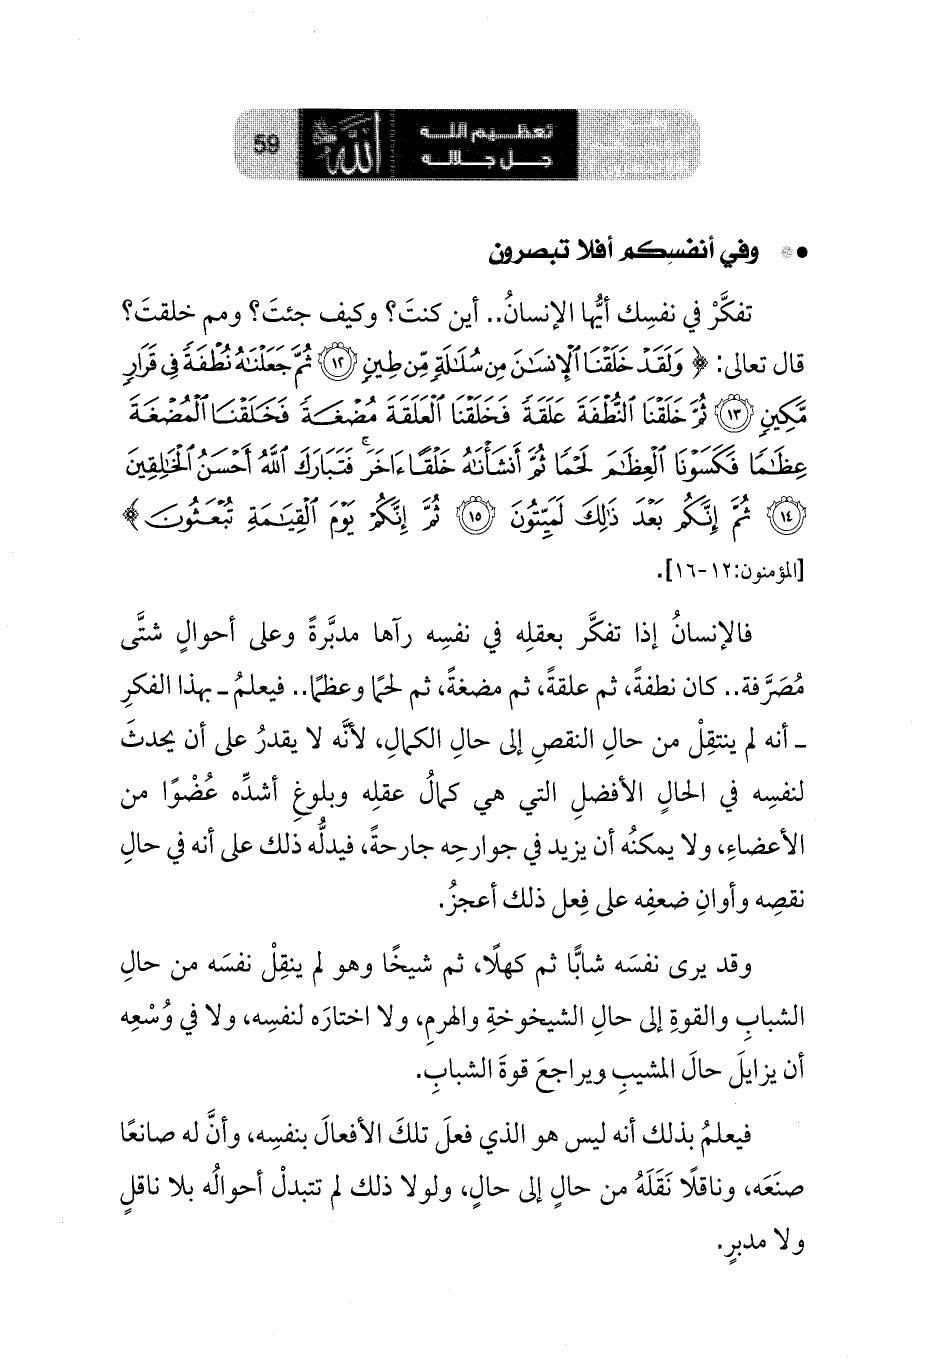 59
الله
تعظيم الله
جل جلاله
وفي أنفسكم أفلا تبصرون
تفكَّرْ في نفسِك أيُّها الإنسانُ.. أين كنتَ؟ وكيف جئتَ؟ ومم خلقتَ؟
قال تعالى: ﴿ وَلَقَدْ خَلَقْنَا ٱلْإِنسَٰنَ مِن سُلَٰلَةٍ مِّن طِينٍ ۝١٢ ثُمَّ جَعَلْنَٰهُ نُطْفَةً فِى قَرَارٍ
مَّكِينٍ ۝١٣ ثُمَّ خَلَقْنَا ٱلنُّطْفَةَ عَلَقَةً فَخَلَقْنَا ٱلْعَلَقَةَ مُضْغَةً فَخَلَقْنَا ٱلْمُضْغَةَ
عِظَٰمًا فَكَسَوْنَا ٱلْعِظَٰمَ لَحْمًا ثُمَّ أَنشَأْنَٰهُ خَلْقًا ءَاخَرَ ۚ فَتَبَارَكَ ٱللَّهُ أَحْسَنُ ٱلْخَٰلِقِينَ
۝١٤ ثُمَّ إِنَّكُم بَعْدَ ذَٰلِكَ لَمَيِّتُونَ ۝١٥ ثُمَّ إِنَّكُمْ يَوْمَ ٱلْقِيَٰمَةِ تُبْعَثُونَ ﴾
[المؤمنون:١٢-١٦].
فالإنسانُ إذا تفكَّر بعقلِه في نفسِه رآها مدبَّرةً وعلى أحوالٍ شتَّى
مُصَرَّفة.. كان نطفةً، ثم علقةً، ثم مضغةً، ثم لحمًا وعظمًا.. فيعلمُ ـ بهذا الفكرِ
ـ أنه لم ينتقِلْ من حالِ النقصِ إلى حالِ الكمالِ، لأنَّه لا يقدرُ على أن يحدثَ
لنفسِه في الحالِ الأفضلِ التي هي كمالُ عقلِه وبلوغِ أشدِّه عُضْوًا من
الأعضاءِ، ولا يمكنُه أن يزيد في جوارحِه جارحةً، فيدلُّه ذلك على أنه في حالِ
نقصِه وأوانِ ضعفِه على فِعل ذلك أعجزُ.
وقد يرى نفسَه شابًّا ثم كهلًا، ثم شيخًا وهو لم ينقِلْ نفسَه من حالِ
الشبابِ والقوةِ إلى حالِ الشيخوخةِ والهرمِ، ولا اختارَه لنفسِه، ولا في وُسْعِه
أن يزايلَ حالَ المشيبِ ويراجعَ قوةَ الشبابِ.
فيعلمُ بذلك أنه ليس هو الذي فعلَ تلكَ الأفعالَ بنفسِه، وأنَّ له صانعًا
صنَعَه، وناقلًا نَقَلَهُ من حالٍ إلى حالٍ، ولولا ذلك لم تتبدلْ أحوالُه بلا ناقلٍ
ولا مدبرٍ.